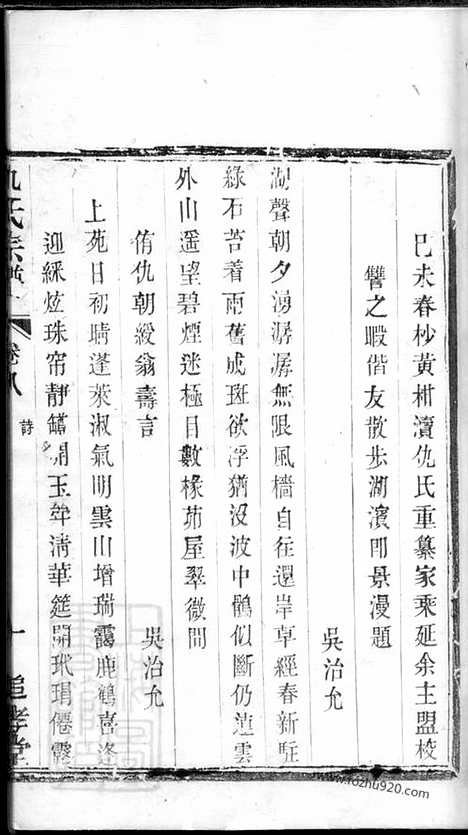 己未春杪黃柑瀆仇氏重纂家乘延余主盟校
讐之暇偕友散步湖濱卽景漫題
吳治允
湖聲朝夕湧潺潺無限風檣自往還岸草經春新駐
綠石苔着雨舊成斑欲浮猶沒波中鶴似斷仍連雲
外山遥望碧煙迷極目數椽茆屋翠微間
侑仇朝綬翁壽言
吳治允
上苑日初晴蓬萊淑氣明雲山增瑞靄鹿鶴喜逢
迎綵炫珠帘靜玉斝清華筵開玳瑁僊露
仇氏宗譜
卷八
詩
一
追孝堂
www.fozhu920.com